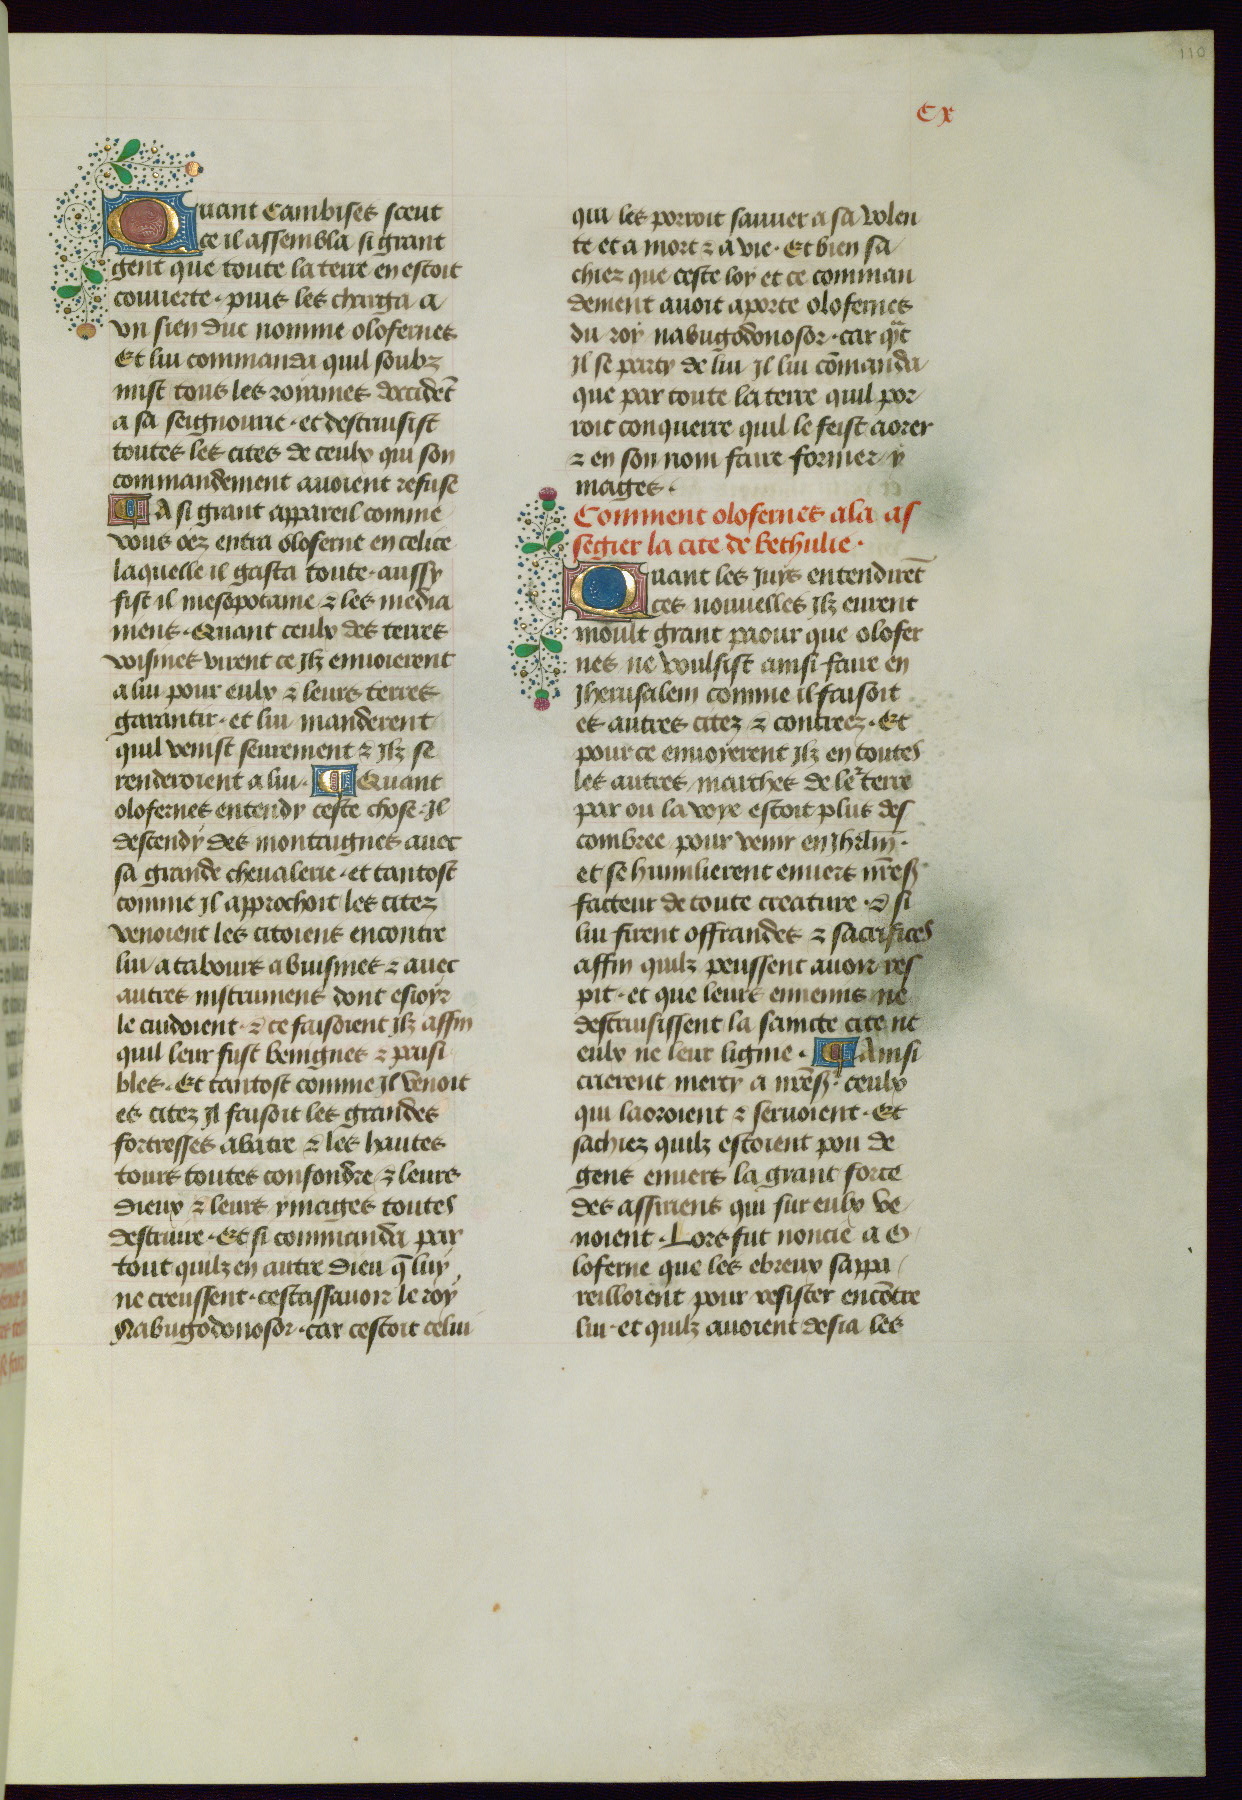 110
Cx
Quant Cambises sceut
ce il assembla si grant
gent que toute la terre en estoit
couuerte · puis les charga a
vn sien duc nomme olofernes
Et lui commanda quil soubz
mist tous les roiames doccidēt
a sa seignourie · et destruisist
toutes les cites de ceulx qui son
commandement auoient refuse
¶ A si grant appareil comme
vous oez entra oloferne en celice
laquelle il gasta toute · aussy
fist il mesopotame ⁊ les media
mens · Quant ceulx des terres
voisines virent ce Ilz enuoierent
a lui pour eulx ⁊ leurs terres
garantir · et lui manderent
quil venist seurement ⁊ Ilz se
renderoient a lui · ¶ Quant
olofernes entendy ceste chose · Il
descendy des montaignes auec
sa grande cheualerie · et tantost
comme Il approchoit les citez
venoient les citoiens encontre
lui a tabours a buisines ⁊ auec
autres instrumens dont esioyr
le cuidoient · ⁊ ce faisoient Ilz affin
quil leur fust benignes ⁊ paisi
bles · Et tantost comme Il venoit
es citez Il faisoit les grandes
fortresses abatre ⁊ les hautes
tours toutes confondre ⁊ leurs
dieux ⁊ leurs ymages toutes
destruire · Et si commanda par
tout quilz en autre dieu q̄ luy
ne creussent · cestassauoir le roy
Nabugodonosor · car cestoit celui
qui les porroit sauuer a sa volen
te et a mort ⁊ a vie · Et bien sa
chiez que ceste loy et ce comman
dement auoit aporte olofernes
du roy nabugodonosor · car qāt
Il se party de lui Il lui cōmanda
que par toute la terre quil por
roit conquerre quil le feist aorer
⁊ en son nom faire former y
mages ·
Comment olofernes ala as
segier la cite de bethulie ·
Quant les Juys entendirēt
ces nouuelles Ilz eurent
moult grant paour que olofer
nes ne voulsist ainsi faire en
Jherusalem comme il faisoit
es autres citez ⁊ contrees · Et
pour ce enuoyerent Ilz en toutes
les autres marches de leʳ terre
par ou la voye estoit plus des
combree pour venir en Jhrlm̄ ·
et se humilierent enuers nr̄eſʳ
facteur de toute creature · ⁊ si
lui firent offrandes ⁊ sacrifices
affin quilz peussent auoir res
pit · et que leurs ennemis ne
destruisissent la saincte cite ne
eulx ne leur lignie · ¶ Ainsi
crierent mercy a nr̄eſʳ ceulx
qui laoroient ⁊ seruoient · Et
sachiez quilz estoient pou de
gens enuers la grant force
des assiriens qui sur eulx ve
noient · Lors fut noncie a O
loferne que les ebreux sappa
reilloient pour resister encōtre
lui · et quilz auoient desia les